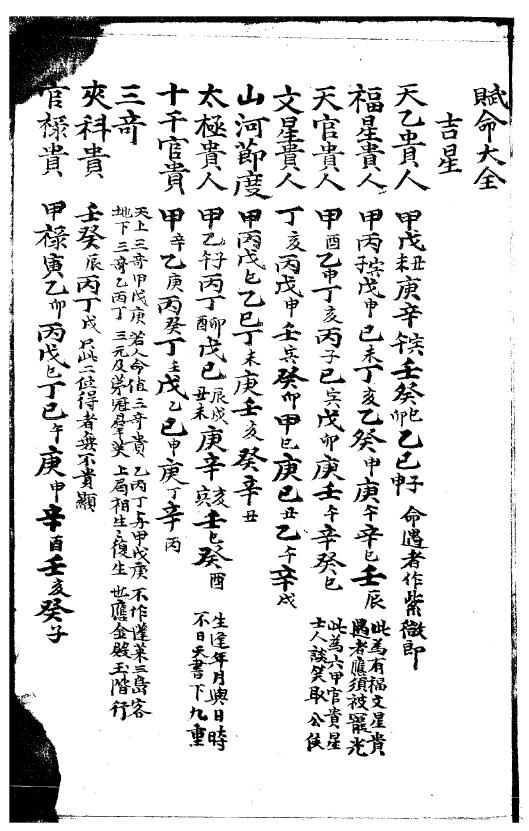 賦命大全
吉星
天乙貴人 甲戊丑未庚辛午寅壬癸巳卯乙己申子 命遇者作紫微郎
福星貴人 甲丙子寅戊申己未丁亥乙癸甲庚午辛巳壬辰 此為有福文星貴 遇者應須被寵光
天官貴人 甲酉乙申丁亥丙子己寅戊卯庚壬午辛癸巳 此為六甲官貴星 士人談笑取公侯
文星貴人 丁亥丙戊申壬寅癸卯甲巳庚己丑乙午辛戌
山河節度 甲丙戊巳乙己丁未庚壬亥癸辛丑
太極貴人 甲乙午子丙丁酉卯戊己辰戌丑未庚辛亥寅壬巳癸酉 生逢年月與日時 不日天書下九重
十干官貴 甲辛乙庚丙癸丁壬戊乙己甲庚丁辛丙
三奇 天上三奇甲戊庚 若人命值三奇貴 乙丙丁与甲戊庚 不作蓬萊三島客 地下三奇乙丙丁 三元及第 上局相生復生 世應金殿玉階行
夾科貴 壬癸辰丙丁戌 只此二位得者無不貴顯
官祿貴 甲祿寅乙卯丙戊巳丁己午庚申辛酉壬亥癸子